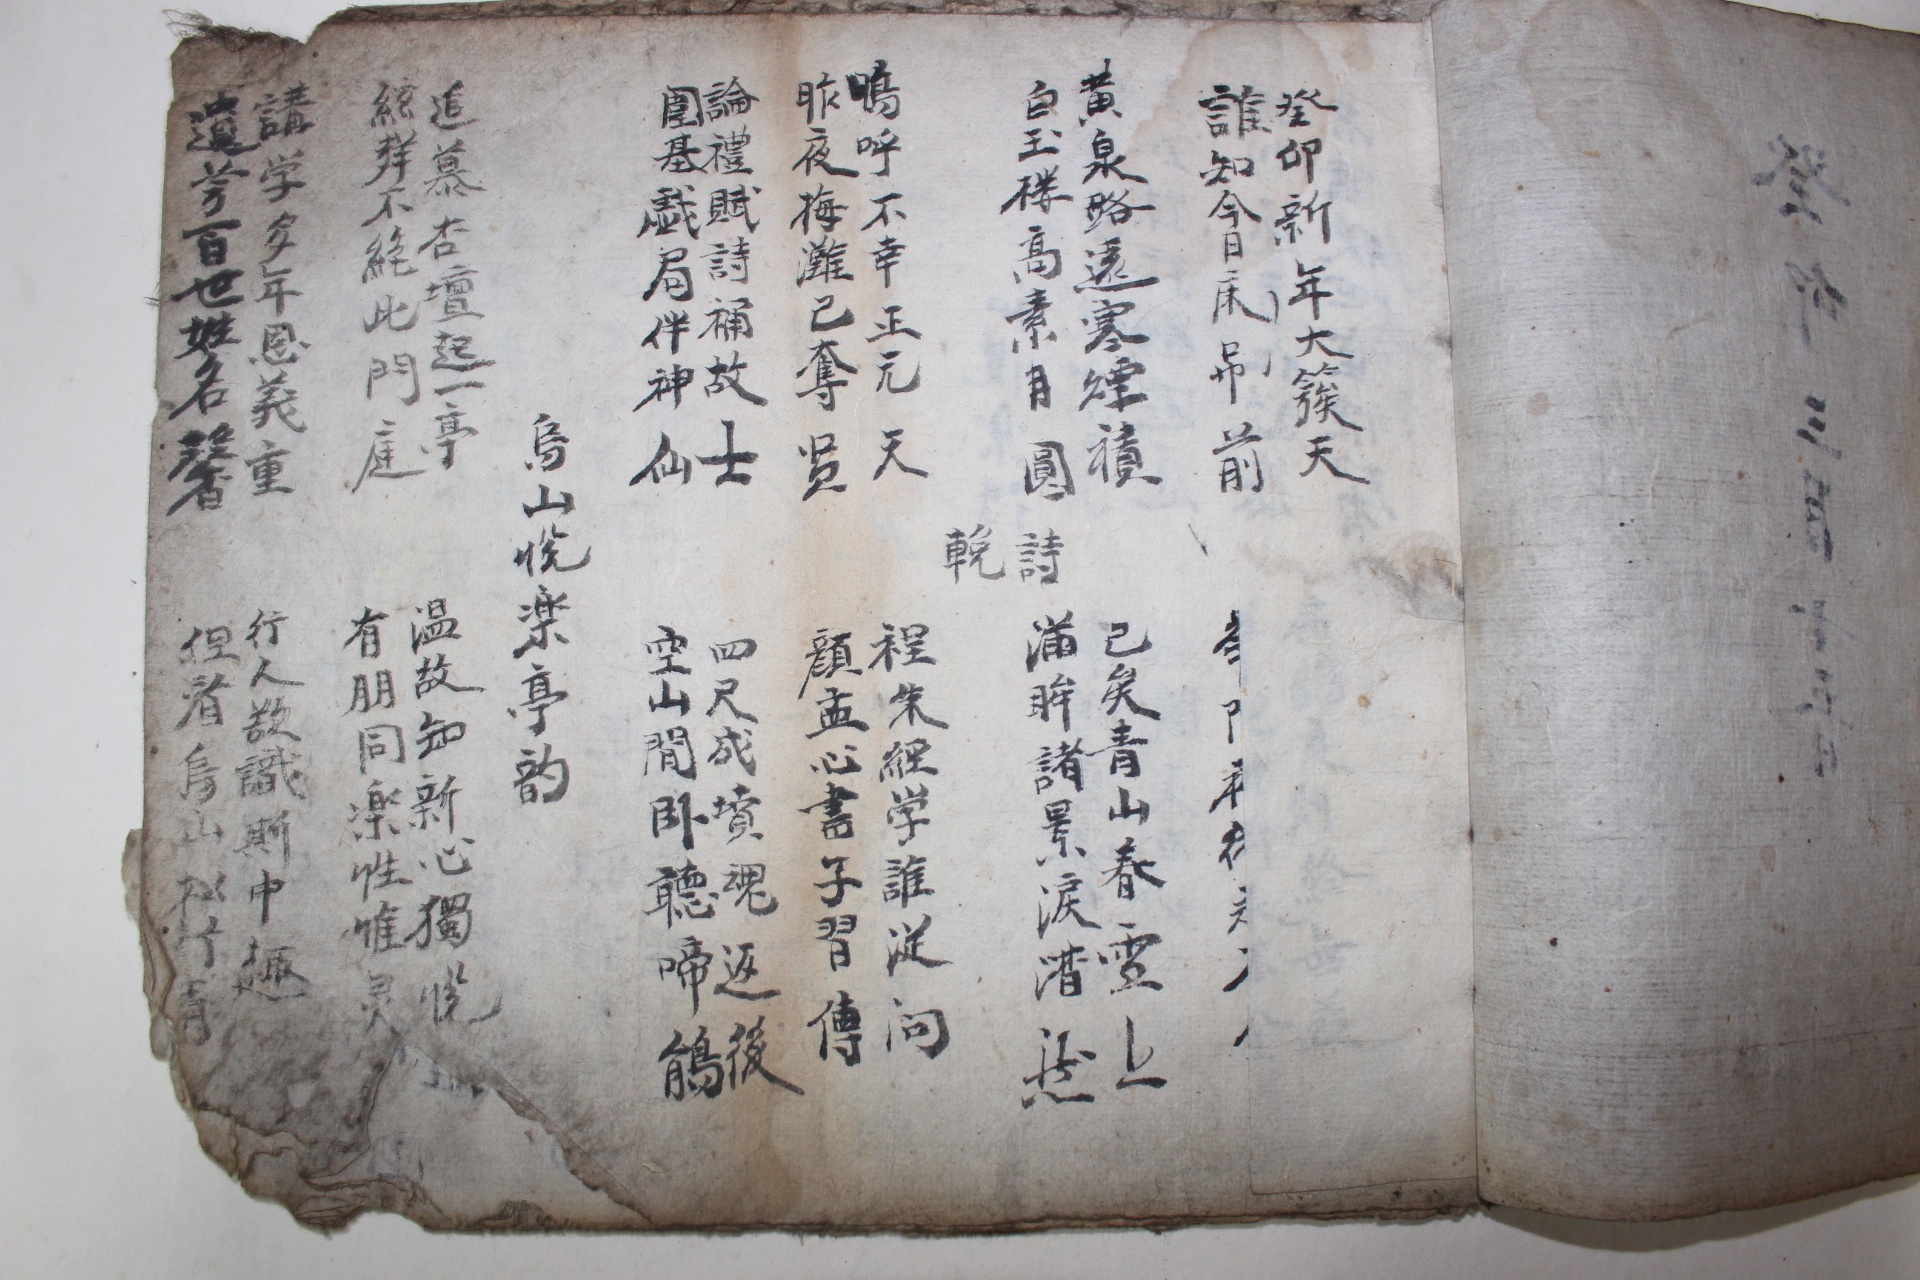 癸卯三月十五日
癸卯新年大簇天
誰知今日床前
黄泉路遠寒煙積
已矣青山春雪上
白玉樓高素月圓
滿眸諸景淚潸然
輓詩
嗚呼不幸正元天
程朱經学誰從问
昨夜梅灘已奪贤
顔孟心書子習傳
論禮賦詩補故士
四尺成墳魂返後
圍基戱局伴神仙
空山閒卧聽啼鵑
烏山悅楽亭韵
追慕杏壇起一亭
温故知新心獨悅
絃群不絶此門庭
有朋同楽性惟灵
講学多年恩義重
行人欲識斯中趣
遺芳百世姓名馨
但看烏山松竹青